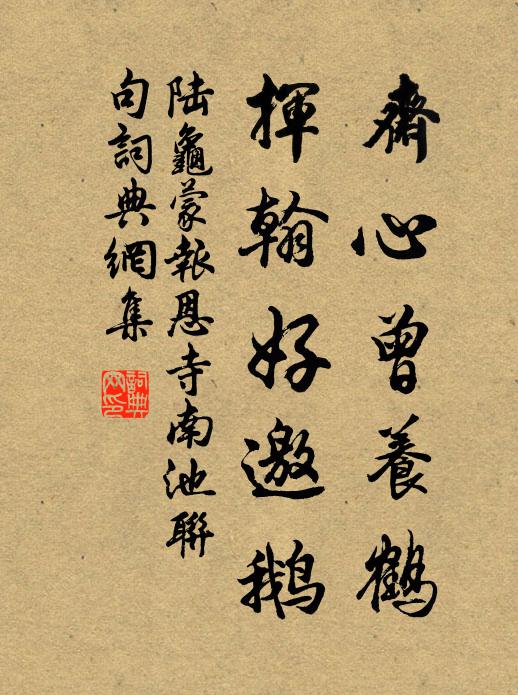 齋心曾養鶴
揮翰好邀鵝
陸龜蒙報恩寺南池聯
句詞典網集
詞典网印